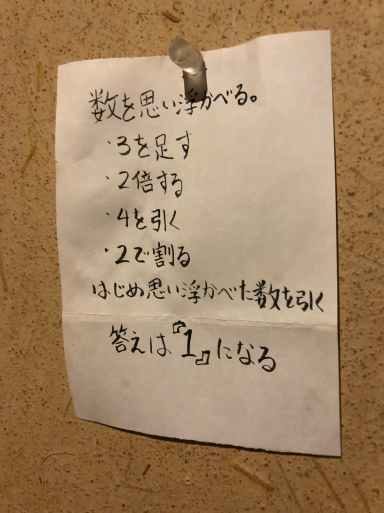 数を思い浮かべる。
・3を足す
・2倍する
・4を引く
・2で割る
はじめ思い浮かべた数を引く
答えは『1』になる